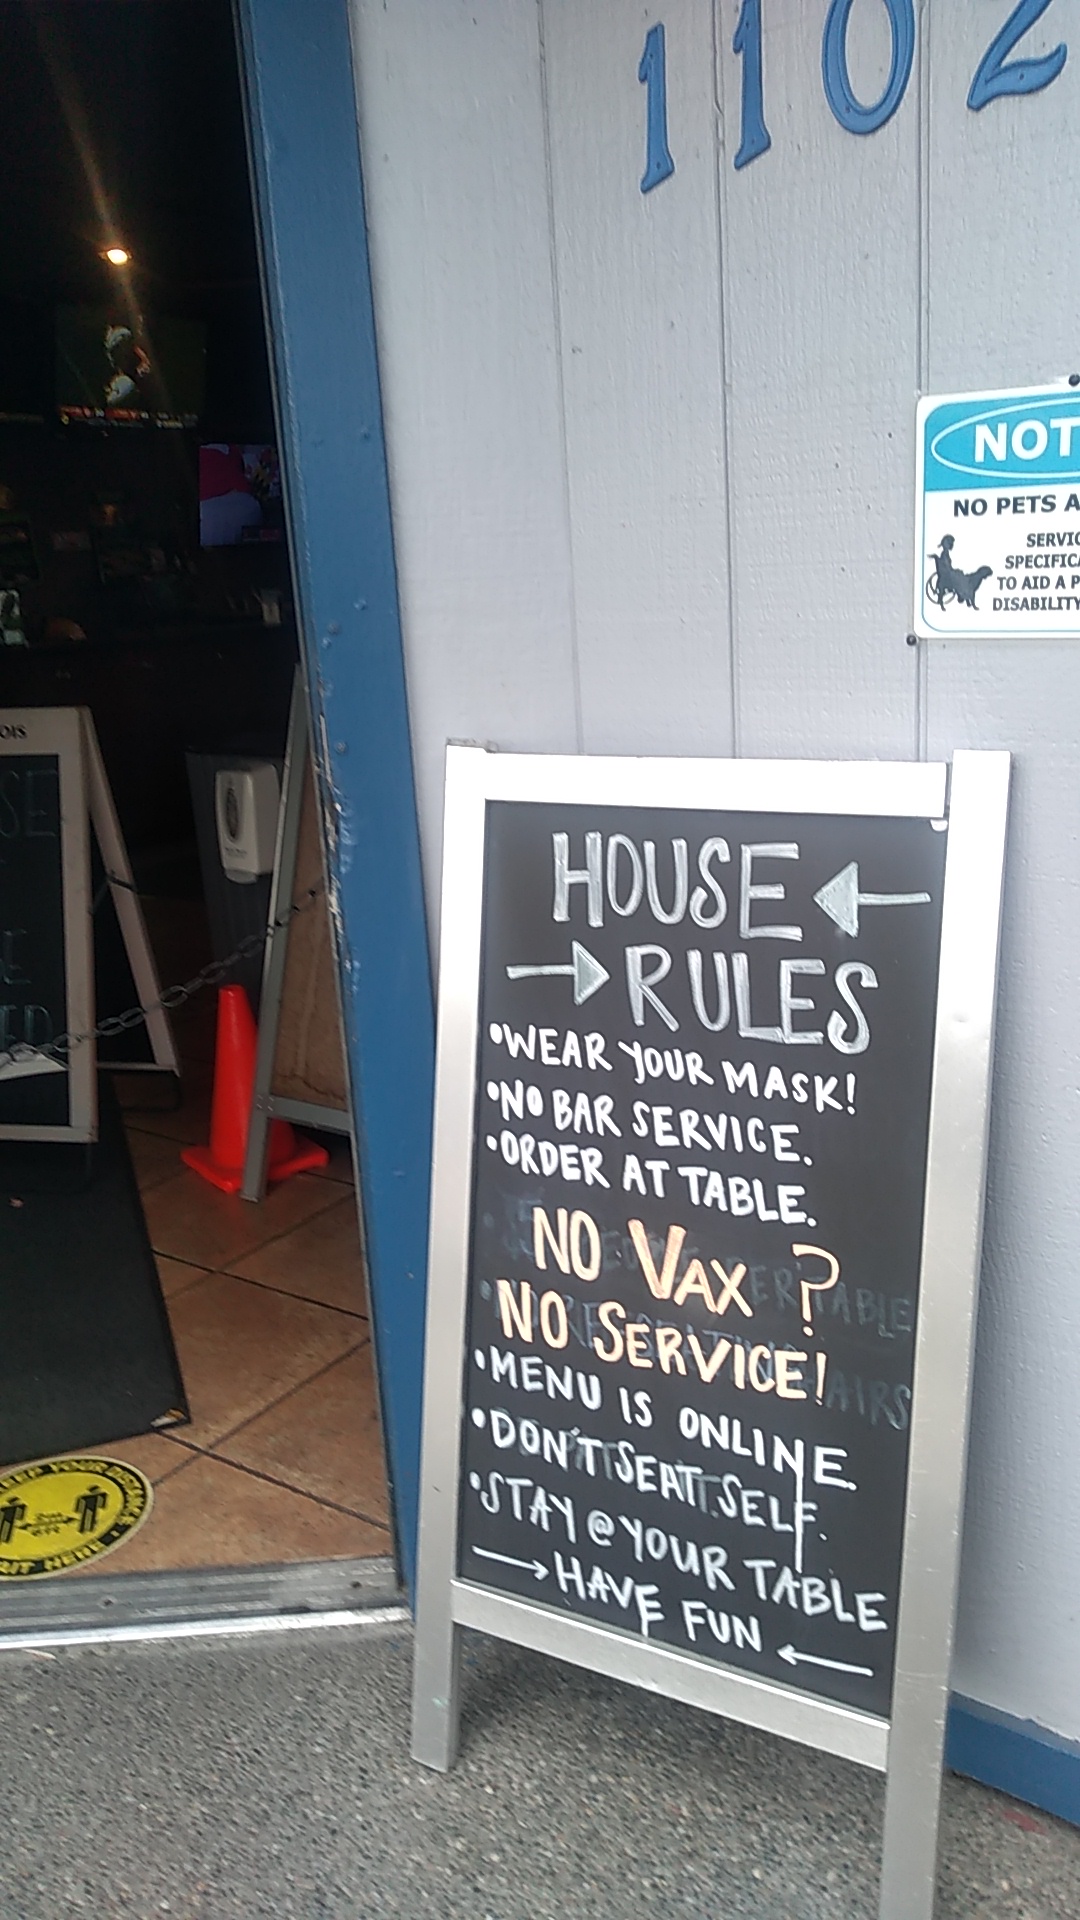 1102
NOT
NO PETS A
SERVIC
SPECIFICA
TO AID A P
DISABILITY
OIS
SE
E
HOUSE ←
→ RULES
•WEAR YOUR MASK!
•NO BAR SERVICE.
•ORDER AT TABLE.
NO VAX ?
NO SERVICE!
PER TABLE
•MENU IS ONLINE.
•DON'T SEAT SELF.
•STAY @ YOUR TABLE
→ HAVE FUN ←
KEEP YOUR DISTANCE